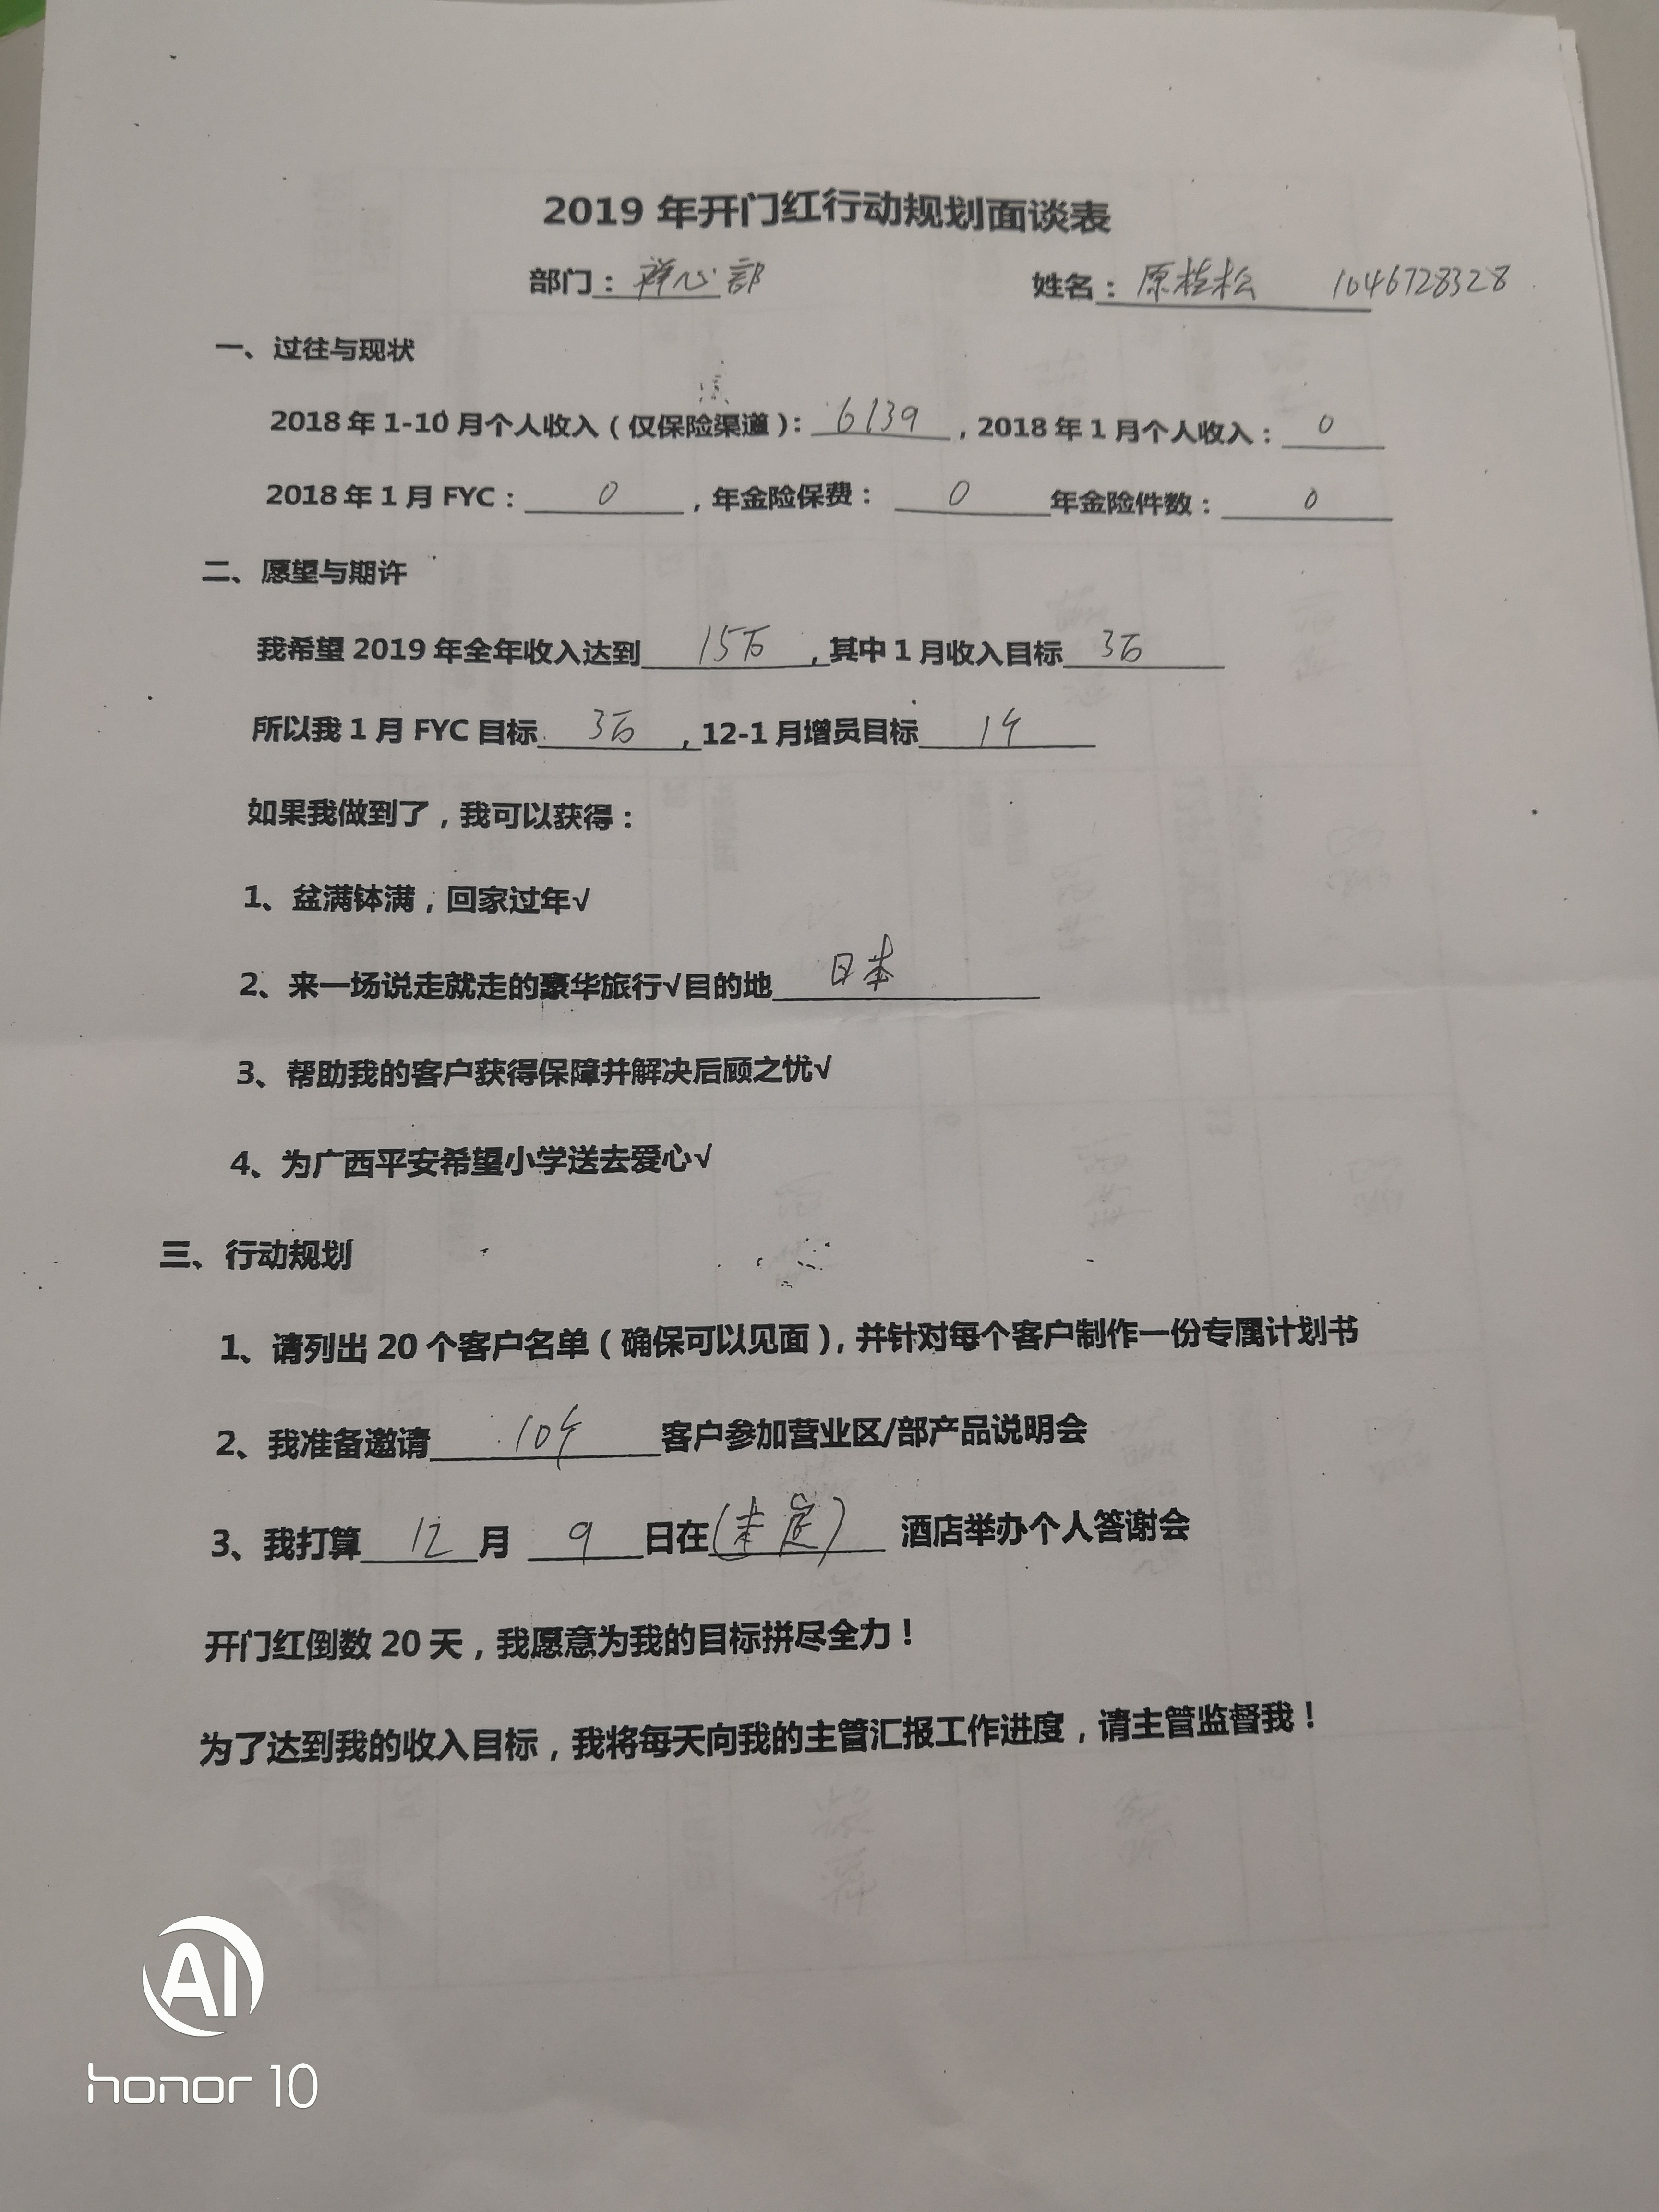 2019 年开门红行动规划面谈表
部门：禅心部 姓名：原桂松 1046728328
一、过往与现状
2018 年 1-10 月个人收入（仅保险渠道）：6139，2018 年 1 月个人收入：0
2018 年 1 月 FYC：0，年金险保费：0 年金险件数：0
二、愿望与期许
我希望 2019 年全年收入达到 15万，其中 1 月收入目标 3万
所以我 1 月 FYC 目标 3万，12-1 月增员目标 1个
如果我做到了，我可以获得：
1、盆满钵满，回家过年√
2、来一场说走就走的豪华旅行√目的地 日本
3、帮助我的客户获得保障并解决后顾之忧√
4、为广西平安希望小学送去爱心√
三、行动规划
1、请列出 20 个客户名单（确保可以见面），并针对每个客户制作一份专属计划书
2、我准备邀请 10个 客户参加营业区/部产品说明会
3、我打算 12 月 9 日在（未定）酒店举办个人答谢会
开门红倒数 20 天，我愿意为我的目标拼尽全力！
为了达到我的收入目标，我将每天向我的主管汇报工作进度，请主管监督我！
AI
honor 10